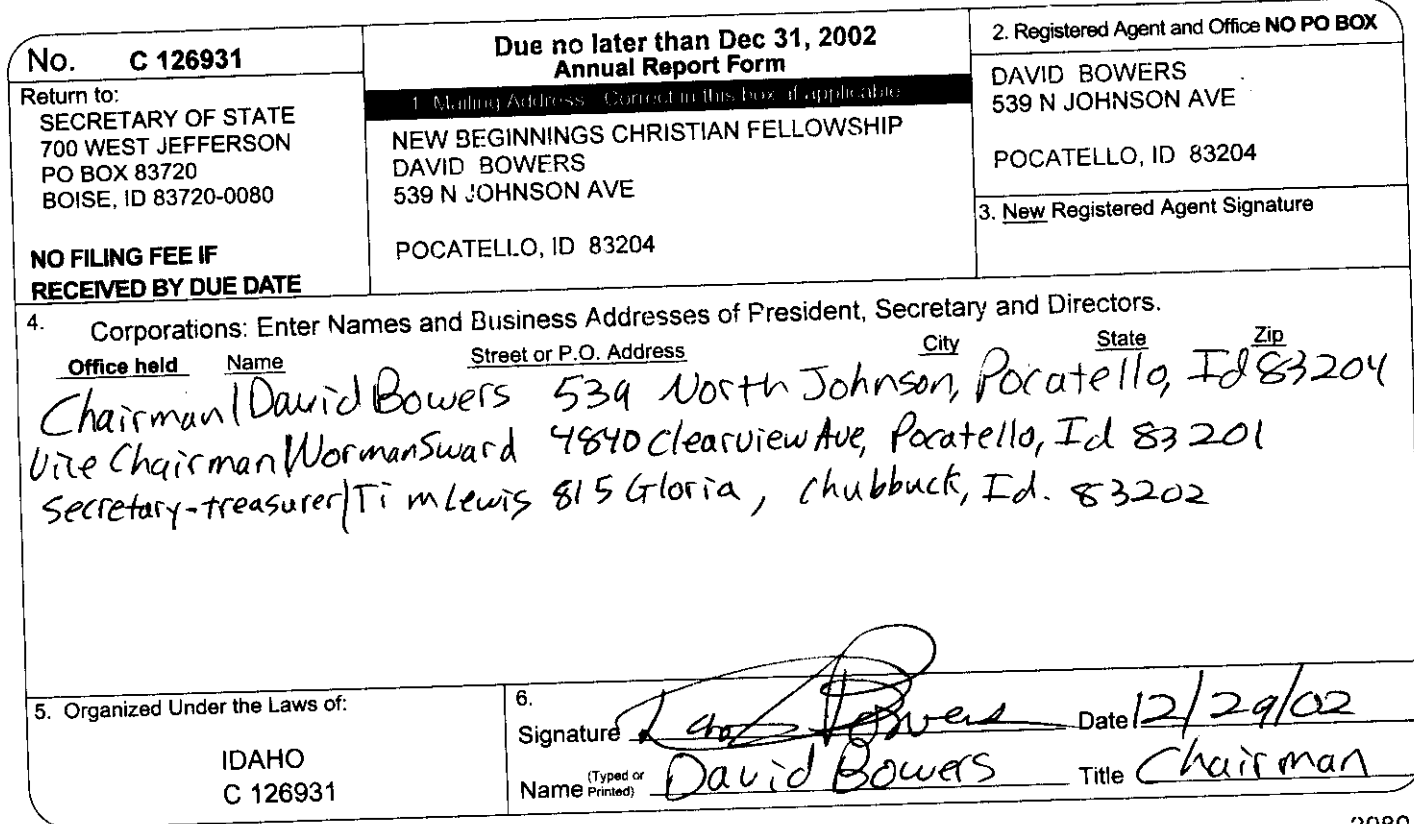 No. C 126931
Return to:
SECRETARY OF STATE
700 WEST JEFFERSON
PO BOX 83720
BOISE, ID 83720-0080
NO FILING FEE IF
RECEIVED BY DUE DATE
Due no later than Dec 31, 2002
Annual Report Form
1. Mailing Address: Correct in this box if applicable
NEW BEGINNINGS CHRISTIAN FELLOWSHIP
DAVID BOWERS
539 N JOHNSON AVE
POCATELLO, ID 83204
2. Registered Agent and Office NO PO BOX
DAVID BOWERS
539 N JOHNSON AVE
POCATELLO, ID 83204
3. New Registered Agent Signature
4. Corporations: Enter Names and Business Addresses of President, Secretary and Directors.
Office held Name Street or P.O. Address City State Zip
Chairman | David Bowers 539 North Johnson, Pocatello, Id 83204
Vice Chairman | Norman Sward 4840 Clearview Ave, Pocatello, Id 83201
Secretary-treasurer | Tim Lewis 815 Gloria, Chubbuck, Id. 83202
5. Organized Under the Laws of:
IDAHO
C 126931
6.
Signature David Bowers Date 12/29/02
Name (Typed or Printed) David Bowers Title Chairman